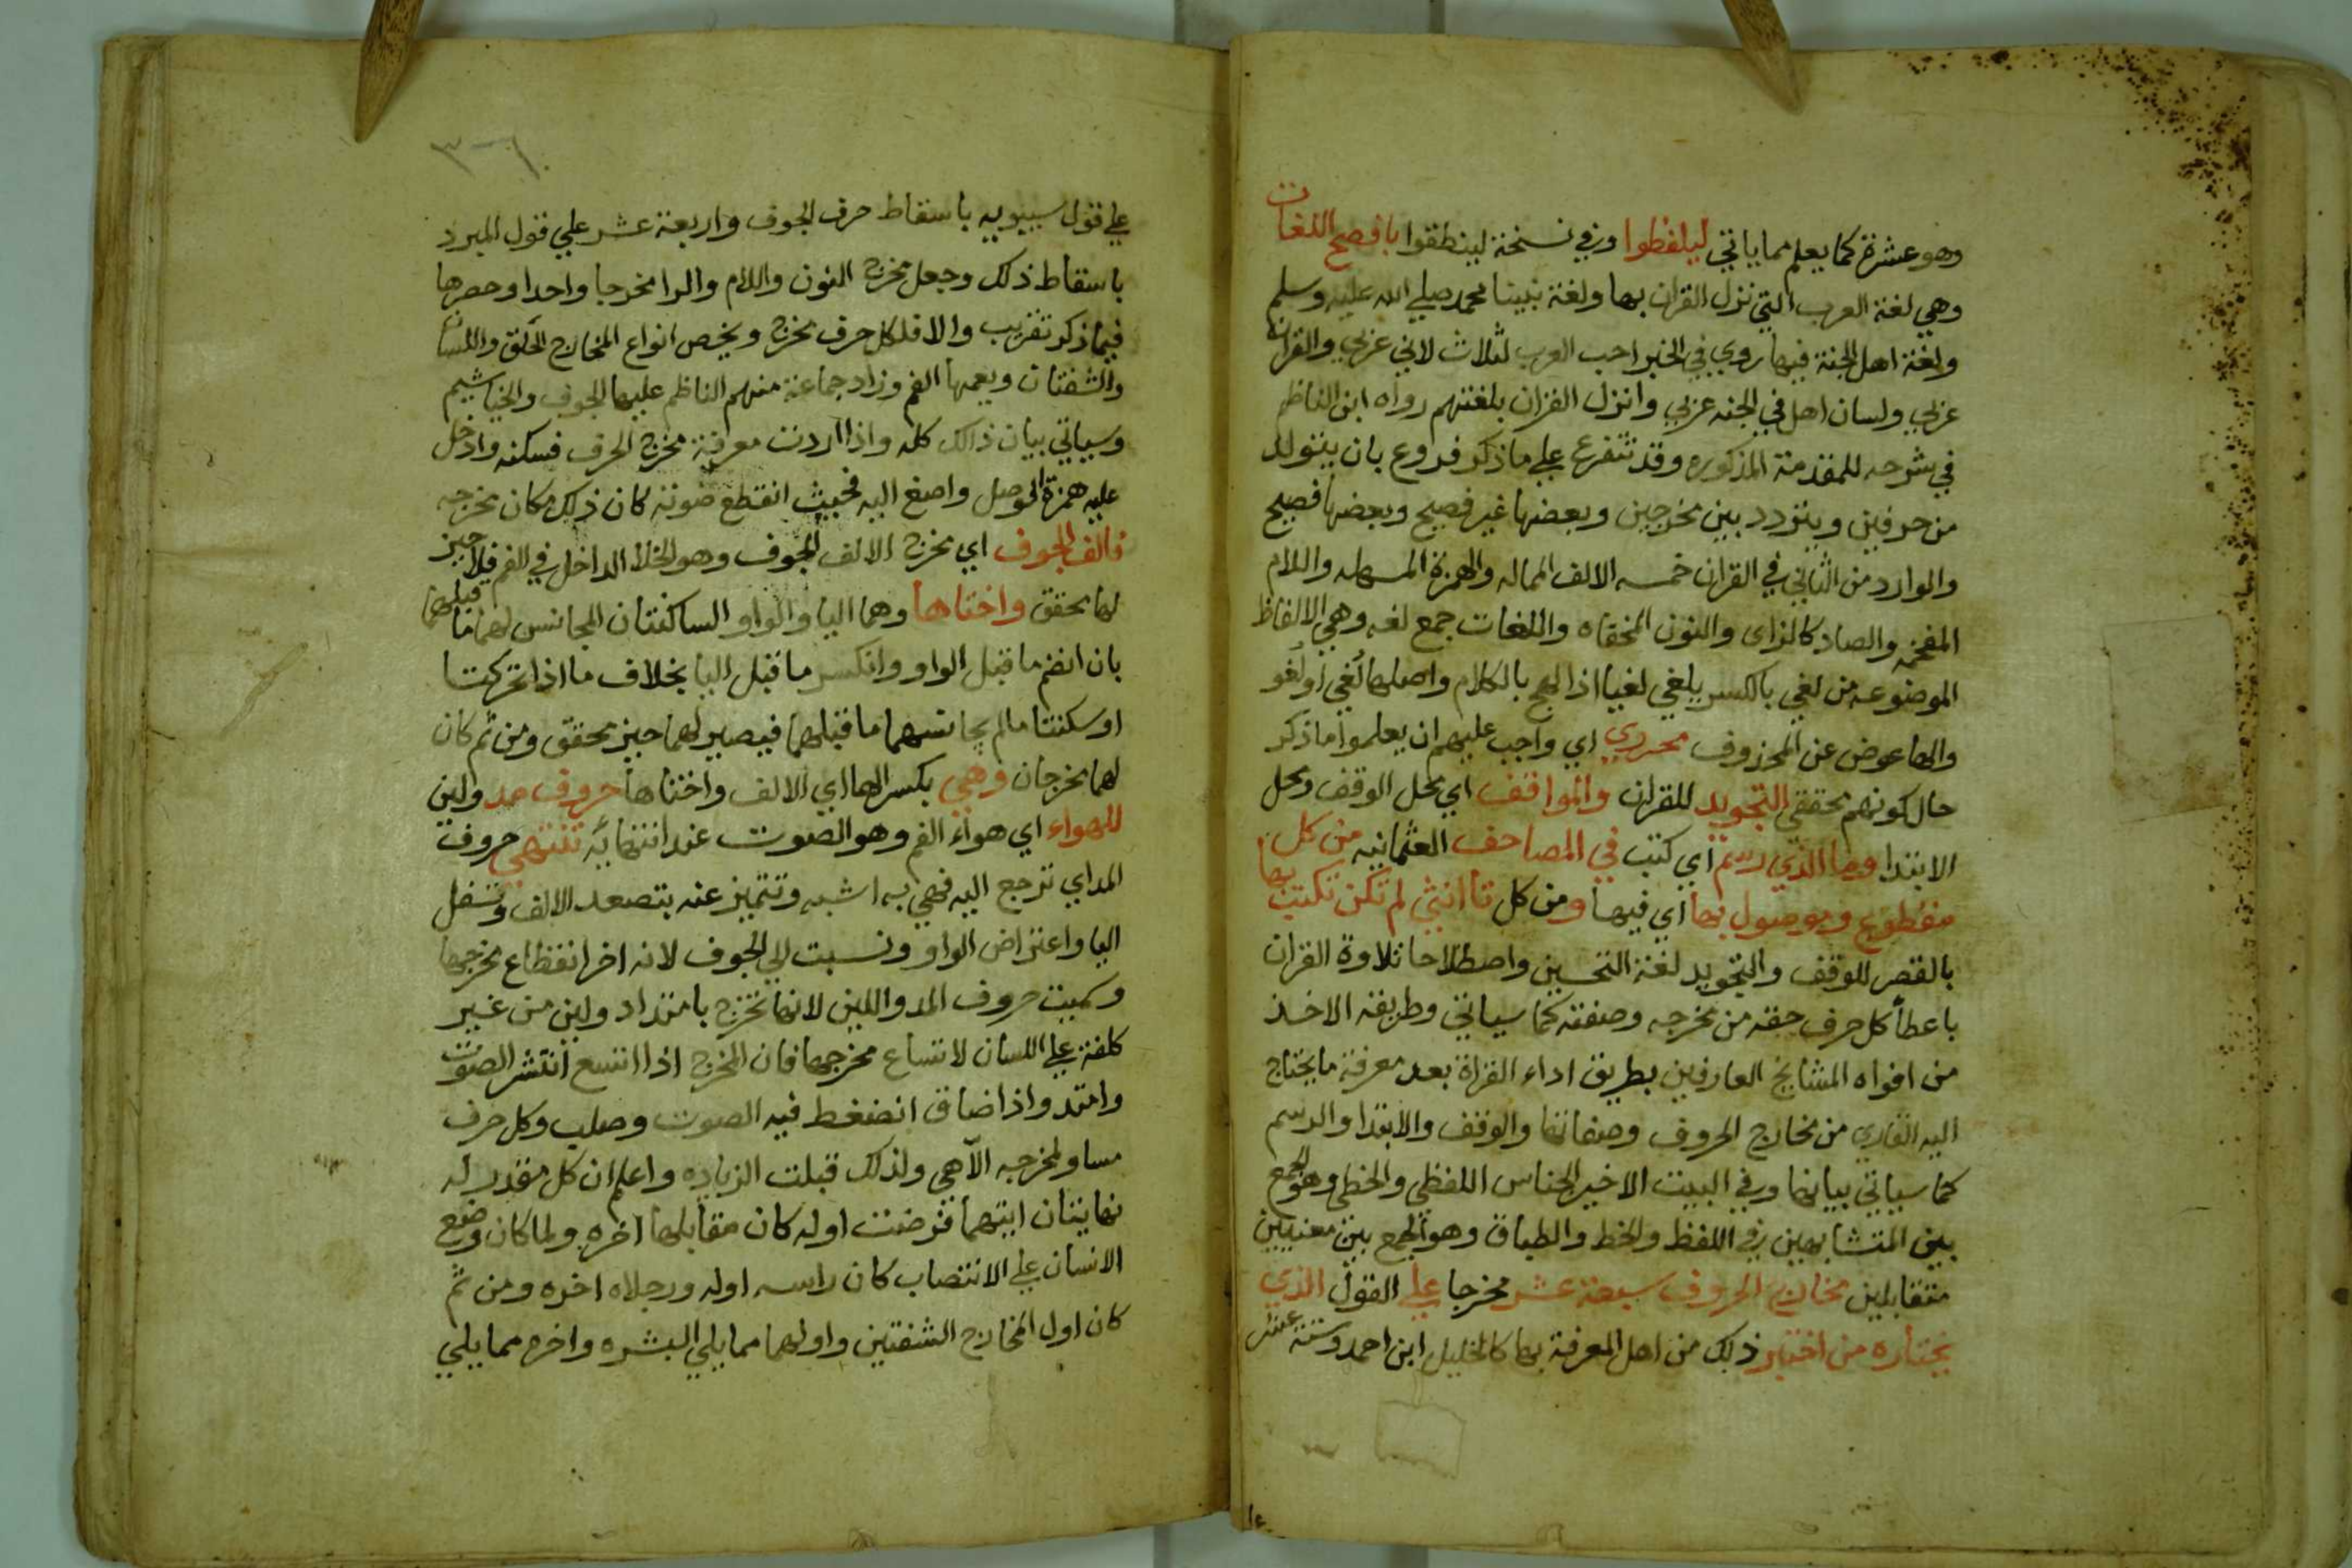 وهو عشرة كما يعلم مما ياتي ليلفظوا وفي نسخة لينطقوا بافصح اللغات
وهي لغة العرب التي نزل القران بها ولغة نبينا محمد صلي الله عليه وسلم
ولغة اهل الجنة فيها روي في الخبر احب العرب لثلاث لاني عربي والقران
عربي ولسان اهل في الجنه عربي وانزل القران بلغتهم رواه ابن الناظم
في شرحه للمقدمة المذكوره وقد تتفرع علي ما ذكر فروع بان يتولد
من حرفين ويتردد بين مخرجين وبعضها غير فصيح وبعضها فصيح
والوارد من الثاني في القران خمسه الالف المماله والهمزة المسهله واللام
المفخمه والصاد كالزاي والنون المخفاه واللغات جمع لغه وهي الالفاظ
الموضوعه من لغي بالكسر يلغي لغيا اذا لهج بالكلام واصلها لغي او لغو
والها عوض عن المحذوف محرري اي واجب عليهم ان يعلموا ما ذكر
حال كونهم محققي التجويد للقران والمواقف اي محل الوقف ومحل
الابتدا وما الذي رسم اي كتب في المصاحف العثمانيه من كل
مقطوع وموصول بها اي فيها ومن كل تا انثي لم تكن تكتب بها
بالقصر للوقف والتجويد لغة التحسين واصطلاحا تلاوة القران
باعطا كل حرف حقه من مخرجه وصفته كما سياتي وطريقه الاخذ
من افواه المشايخ العارفين بطريق اداء القراة بعد معرفة ما يحتاج
اليه القاري من مخارج الحروف وصفاتها والوقف والابتدا والرسم
كما سياتي بيانها وفي البيت الاخير الجناس اللفظي والخطي وهو الجمع
بين المتشابهين في اللفظ والخط والطباق وهو الجمع بين معنيين
متقابلين مخارج الحروف سبعة عشر مخرجا علي القول الذي
يختاره من اختبر ذلك من اهل المعرفة بها كالخليل ابن احمد وستة عشر
علي قول سيبويه باسقاط حرف الجوف واربعة عشر علي قول المبرد
باسقاط ذلك وجعل مخرج النون واللام والرا مخرجا واحدا وحصرها
فيما ذكر تقريب والا فلكل حرف مخرج ويخص انواع المخارج الحلق واللسان
والشفتان ويعمها الفم وزاد جماعة منهم الناظم عليها الجوف والخياشيم
وسياتي بيان ذالك كله واذا اردت معرفة مخرج الحرف فسكنه وادخل
عليه همزة الوصل واصغ اليه فحيث انقطع صوته كان ذلك مكان مخرجه
فالف الجوف اي مخرج الالف الجوف وهو الخلا الداخل في الفم فلا حيز
لها محقق واختاها وهما اليا والواو الساكنتان المجانس لهما ما قبلهما
بان انضم ما قبل الواو وانكسر ما قبل اليا بخلاف ما اذا تحركتا
او سكنتا مالم يجانسهما ما قبلهما فيصير لهما حيز محقق ومن ثم كان
لهما مخرجان وهي بكسر الها اي الالف واختاها حروف مد ولين
للهواء اي هواء الفم وهو الصوت عند انتهائه تنتهي حروف
المد اي ترجع اليه فهي به اشبه وتتميز عنه بتصعد الالف وتسفل
اليا واعتراض الواو ونسبت الي الجوف لانه اخر انقطاع مخرجها
وسميت حروف المد واللين لانها تخرج بامتداد ولين من غير
كلفة علي اللسان لاتساع مخرجها فان المخرج اذا اتسع انتشر الصوت
وامتد واذا ضاق انضغط فيه الصوت وصلب وكل حرف
مساو لمخرجه الا هي ولذلك قبلت الزياده واعلم ان كل مقدر له
نهايتان ايتهما فرضت اوله كان مقابلها اخره ولما كان وضع
الانسان علي الانتصاب كان راسه اوله ورجلاه اخره ومن ثم
كان اول المخارج الشفتين واولهما مما يلي البشره واخره مما يلي